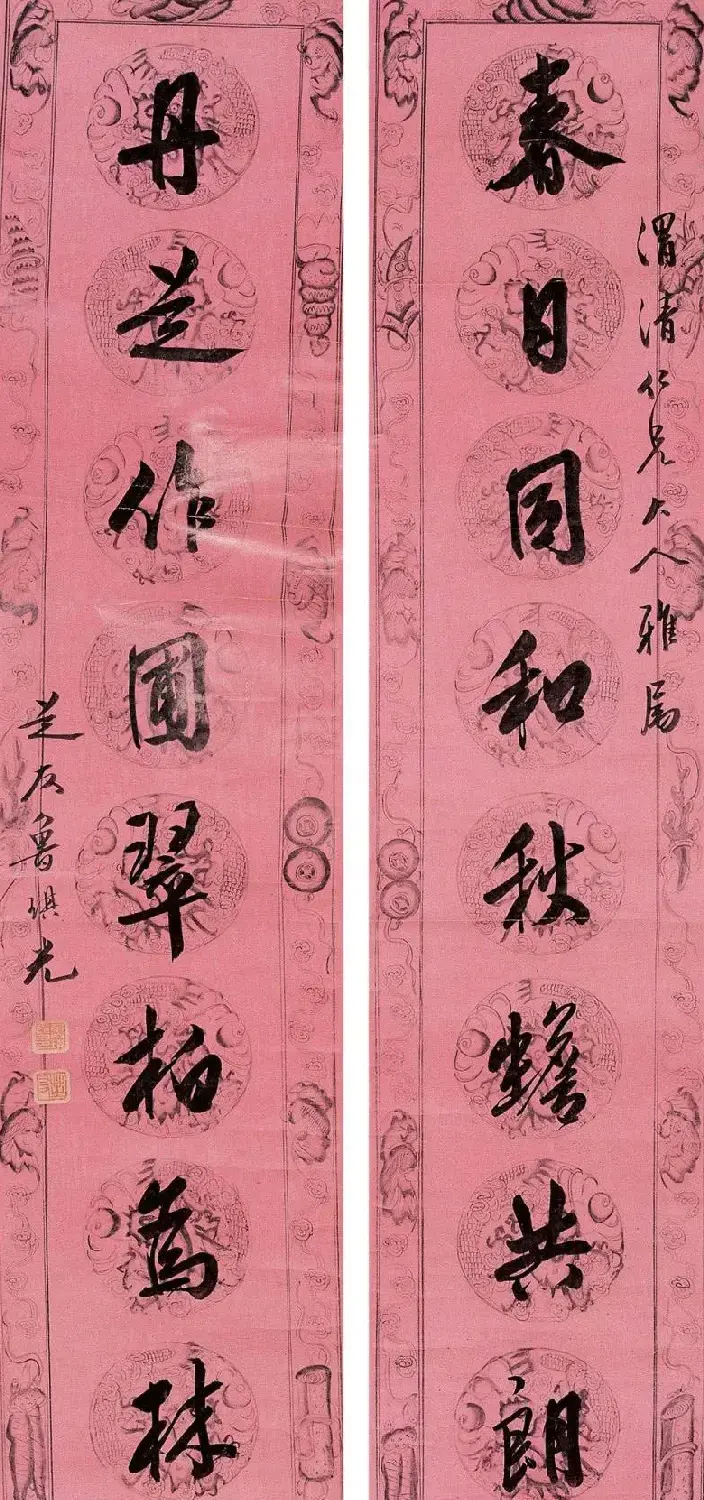 春日同和秋蟾共朗
渭清仁兄大人雅屬
丹芝作圃翠柏為林
芝友魯琪光